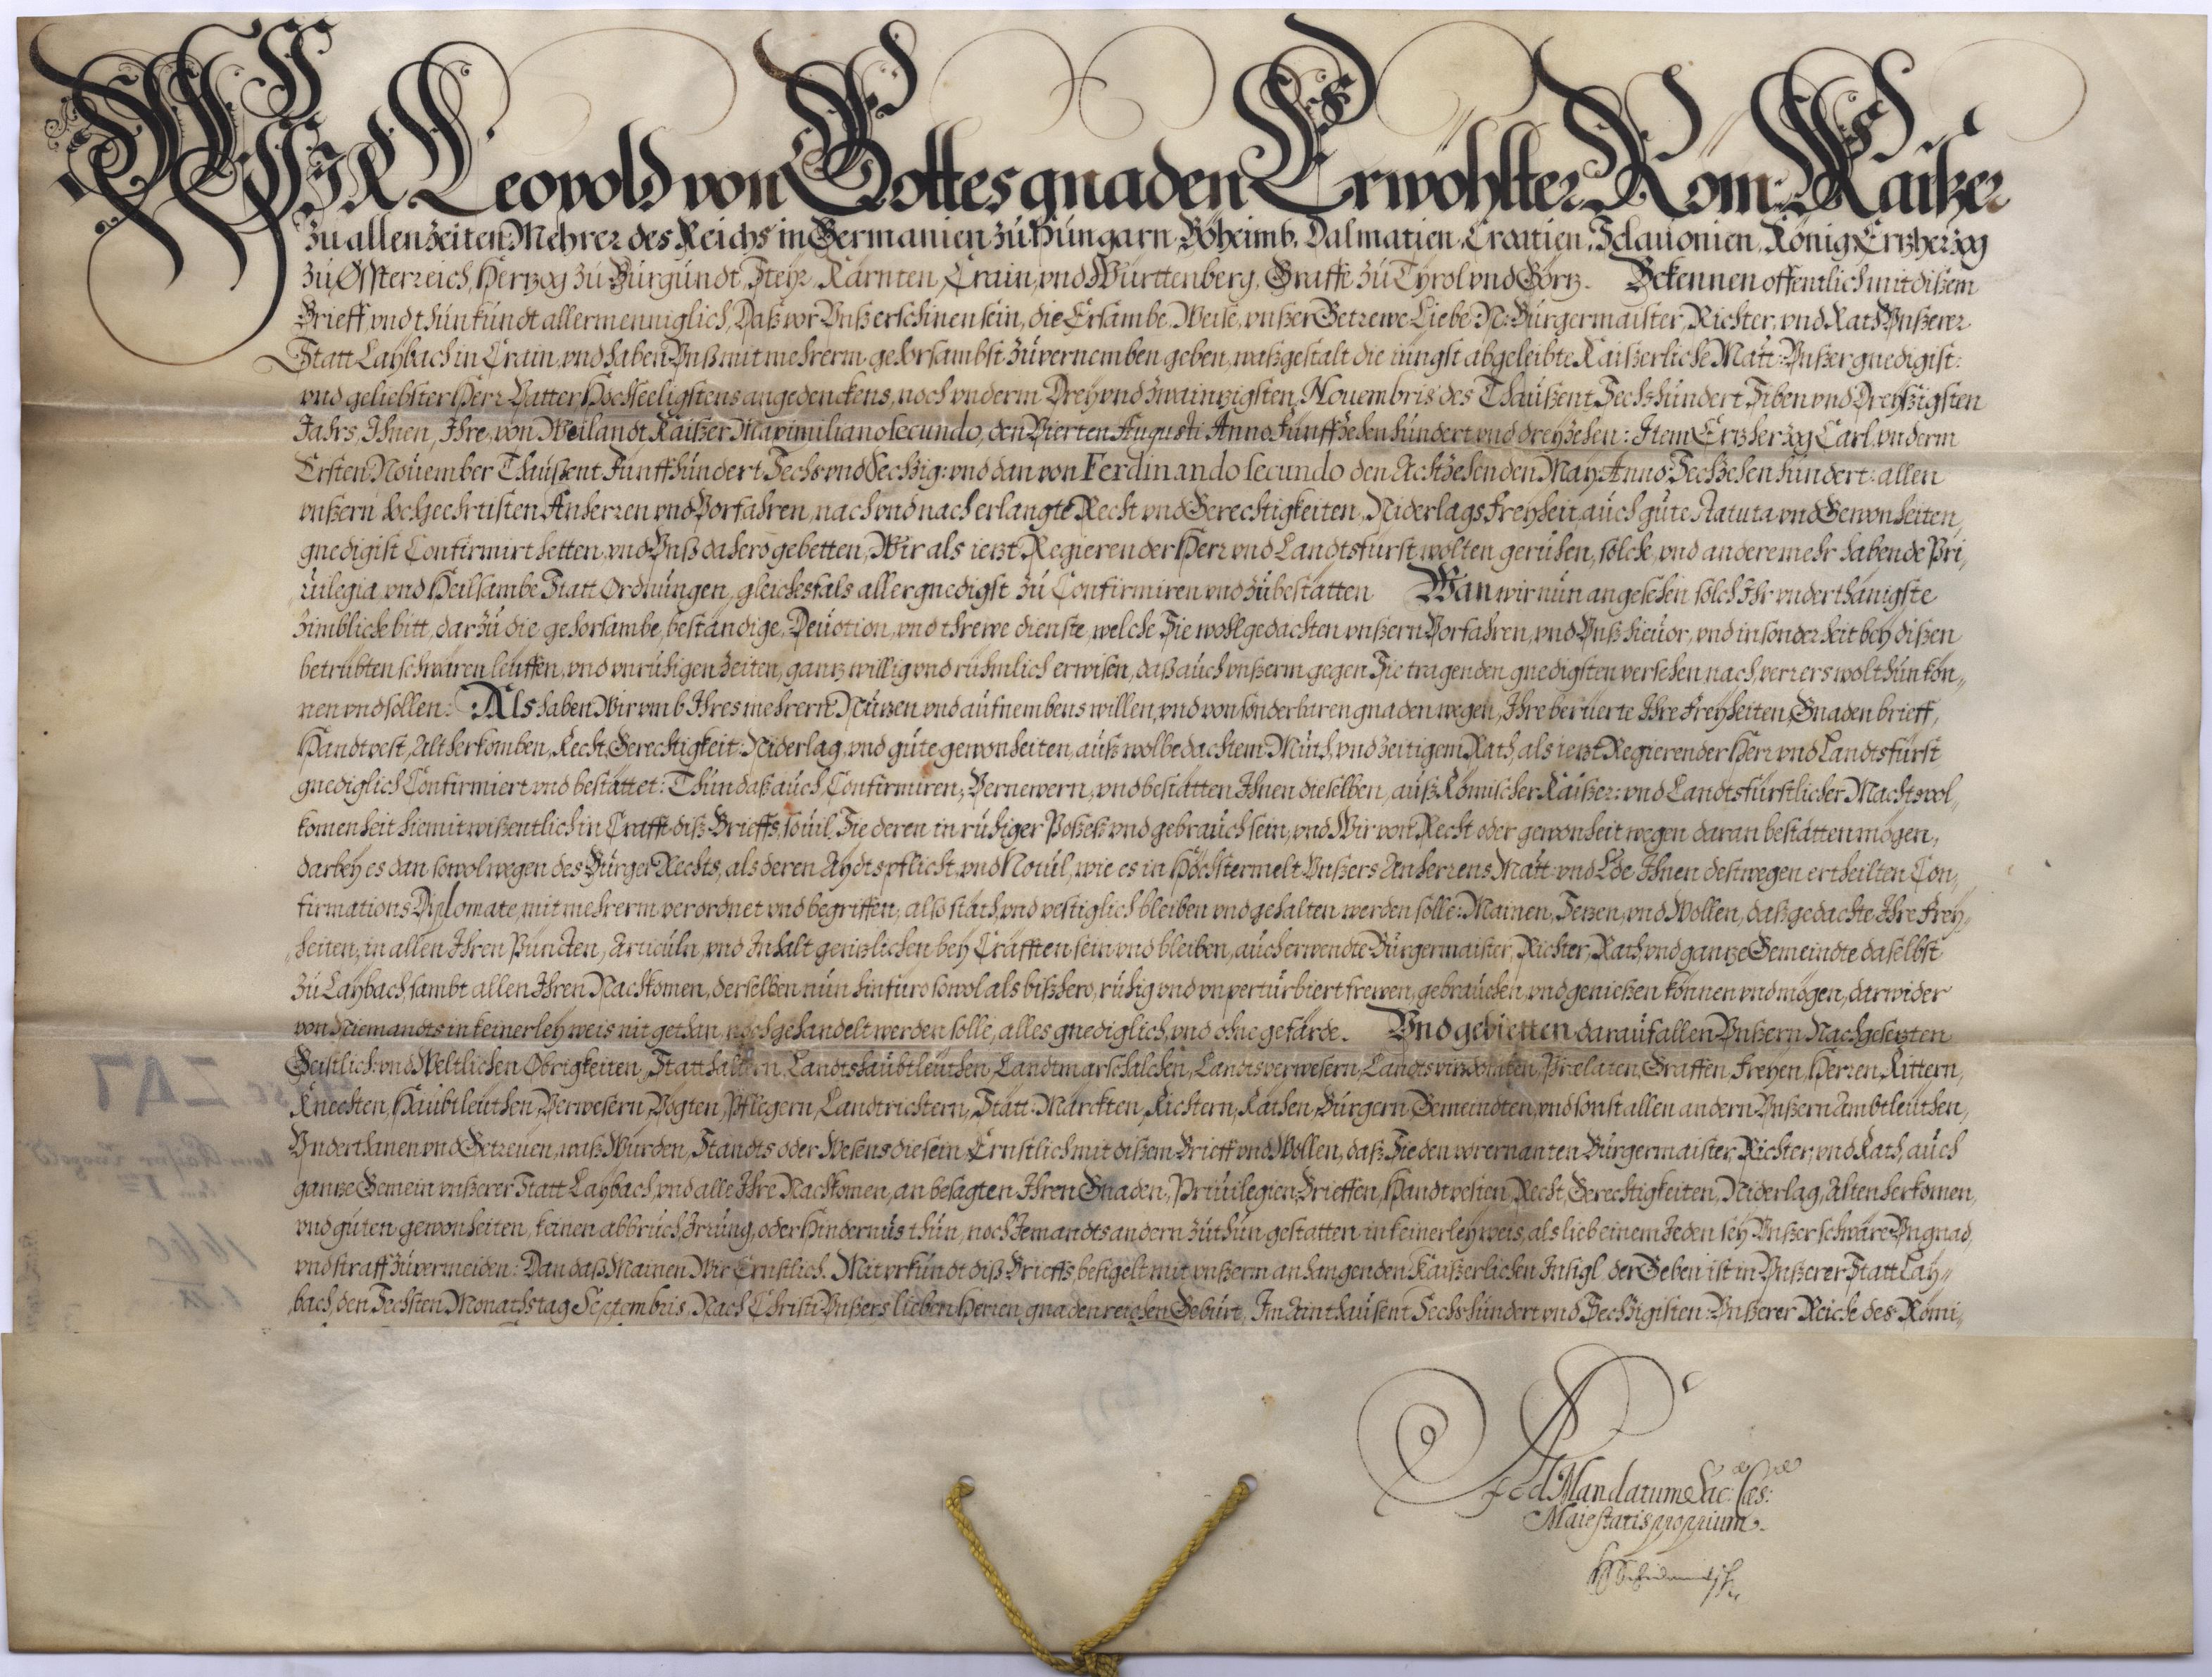 WIR Leopold von Gottes gnaden Erwöhlter Röm: Kaißer
zu allen Zeiten Mehrer des Reichs in Germanien zu Hungarn, Böheimb, Dalmatien, Croatien, Sclauonien, König Ertzherzog
zu Össterreich, Hertzog zu Burgundt, Steyr, Kärnten, Crain, vnd Württenberg, Graffe zu Tyrol vnd Görtz. Bekennen offentlich mit dißem
Brieff vnd thun kundt allermenniglich, Daß vor Vnß erschinen sein, die Ersambe, Weise, vnßer Getrewe Liebe N: Burgermaister, Richter, vnd Rath Vnßerer
Statt Laybach in Crain, vnd haben Vnß mit mehrerm gehorsambst zuvernemben geben, waßgestalt die iüngst abgeleibte Kaißerliche Matt: Vnßer gnedigist:
vnd geliebster Herr Vatter Hochseeligstens angedenckens, noch vnderm Drey vnd zwainzigsten Nouembris des Thaußent Sechshundert Siben vnd Dreyßigsten
Jahrs, Ihnen, Ihre, von Weilandt Kaißer Maximiliano secundo, den Vierten Augusti Anno Funffzehenhundert vnd dreyzehen: Item Ertzherzog Carl, vnderm
Ersten Nouember Thaußent Funffhundert Sechs vnd Sechzig: vnd dan von Ferdinando secundo den Achtzehenden May Anno Sechzehenhundert: allen
vnßern hochgeehrtisten Anherren vnd Vorfahren, nach vnd nach erlangte Recht vnd Gerechtigkeiten, Niderlags freyheit, auch gute statuta vnd Gewonheiten,
gnedigist Confirmirt hetten, vnd Vnß dahero gebetten, Wir als ietzt Regierender Herr vnd Landtsfürst, wolten geruhen, solche, vnd andere mehr habende Pri„
uilegia, vnd Heilsambe Statt Ordnungen, gleichsfals allergnedigst zu Confirmiren vnd zubestatten Wan wir nun angesehen solch Ihr vnderthänigste
zimbliche bitt, darzu die gehorsambe, beständige Deuotion, vnd threwe dienste, welche Sie wohlgedachten vnßern Vorfahren, vnd Vnß hieuor, vnd in sonderheit bey dißen
betrübten schwären leuffen, vnd vnruhigen zeiten, gantz willig vnd rühmlich erwisen, daß auch vnßerm gegen Sie tragenden gnedigsten versehen nach, verrers wol thun kön„
nen vnd sollen: Als haben Wir vmb Ihres mehrern Nutzen vnd aufnembens willen, vnd von sonderbaren gnaden wegen, Ihre berüerte Ihre freyheiten, Gnadenbrieff,
Handtvest, Alt herkomben, Recht, Gerechtigkeit, Niderlag, vnd gute gewonheiten, auß wolbedachtem Muth, vnd zeitigem Rath, als ietzt Regierender Herr vnd Landtsfürst
gnediglich Confirmiert vnd bestättet: Thun daß auch, Confirmiren, Vernewern, vnd bestätten Ihnen dieselben, auß Römischer Kaißer: vnd Landtsfürstlicher Machtsvol„
komenheit hiemit wißentlich in Crafft diß Brieffs, souil Sie deren in ruhiger Poßeß vnd gebrauch sein, vnd Wir von Recht oder gewonheit wegen daran bestätten mögen,
darbey es dan sowol wegen des Burger Rechts, als deren Aydtspflicht, vnd Nouul, wie es in Höchstermelt Vnßers Anherrens Matt: vnd Lde Ihnen deßwegen ertheilten Con„
firmations Diplomate, mit mehrerm verordnet vnd begriffen, alß stäth, vnd vestiglich bleiben vnd gehalten werden solle: Mainen, Setzen, vnd Wollen, daß gedachte Ihre frey„
heiten, in allen Ihren Puncten, Articuln, vnd Inhalt gentzlichen bey Crafften sein vnd bleiben, auch erwendte Burgermaister, Richter, Rath, vnd gantze Gemeindte daselbst
zu Laybach, sambt allen Ihren Nachkomen, derselben nun hinfuro sowol als bißhero, ruhig vnd vnperturbiert frewen, gebrauchen, vnd genießen können vnd mögen, darwider
von Niemandts in keinerley weis nit gethan, noch gehandelt werden solle, alles gnediglich, vnd ohne gefärde. Vnd gebietten darauf allen Vnßern Nachgesetzten
Geistlich: vnd Weltlichen Obrigkeiten, Statthaltern, Landtshaubtleuthen, Landtmarschalchen, Landtsverwesern, Landtsvizdomben, Prælaten, Graffen, freyen, Herren, Rittern,
Knechten, Haubtleuthen, Verwesern, Vögten, Pflegern, Landtrichtern, Stätt, Märckten, Richtern, Räthen, Burgern, Gemeindten, vnd sonst allen andern Vnßern Ambtleuthen,
Vnderthanen vnd Getreuen, waß Wurden, Standts oder Weßens die sein, Ernstlich mit dißem Brieff vnd Wollen, daß Sie den vorernanten Burgermaister, Richter, vnd Rath, auch
gantze Gemein vnßerer Statt Laybach, vnd alle Ihre Nachkomen, an besagten Ihren Gnaden, Priuilegien, Brieffen, Handtvesten, Recht, Gerechtigkeiten, Niderlag, Alten herkomen,
vnd guten gewonheiten, keinen abbruch, Irrung, oder Hindernus thun, noch Iemandts andern zuthun gestatten, in keinerley weis, als lieb einem Ieden sey Vnßer schwäre Vngnad,
vnd straff zuvermeiden: Dan daß Mainen Wir Ernstlich. Mit vrkundt diß Brieffs, besigelt mit vnßerm anhangenden Kaißerlichen Insigl, der Geben ist in Vnßerer Statt Lay„
bach, den Sechsten Monathstag Septembris, Nach Christi Vnßers lieben Herren gnadenreichen Geburt, Im Ainthaußent Sechshundert vnd Sechzigisten: Vnßerer Reiche des Römi„
Ad Mandatum Sac: Cæs:
Maiestatis proprium.